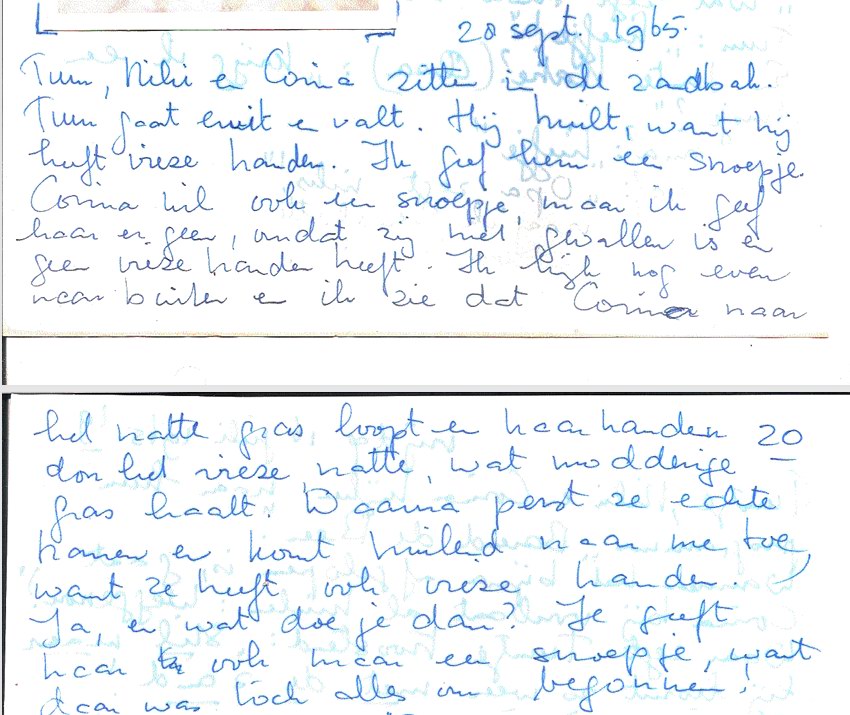 20 sept. 1965.
Tum, Niki en Corina zitten in de zandbak.
Tum gaat eruit en valt. Hij huilt, want hij
heeft vieze handen. Ik geef hem een snoepje.
Corina wil ook een snoepje, maar ik geef
haar er geen, omdat zij niet gevallen is en
geen vieze handen heeft. Ik kijk nog even
naar buiten en ik zie dat Corina naar
het natte gras loopt en haar handen 20
door het vieze, natte, wat modderige
gras haalt. Daarna perst ze echte
tranen en komt huilend naar me toe,
want ze heeft ook vieze handen.
Ja, en wat doe je dan? Je geeft
haar ook maar een snoepje, want
daar was toch alles om begonnen!